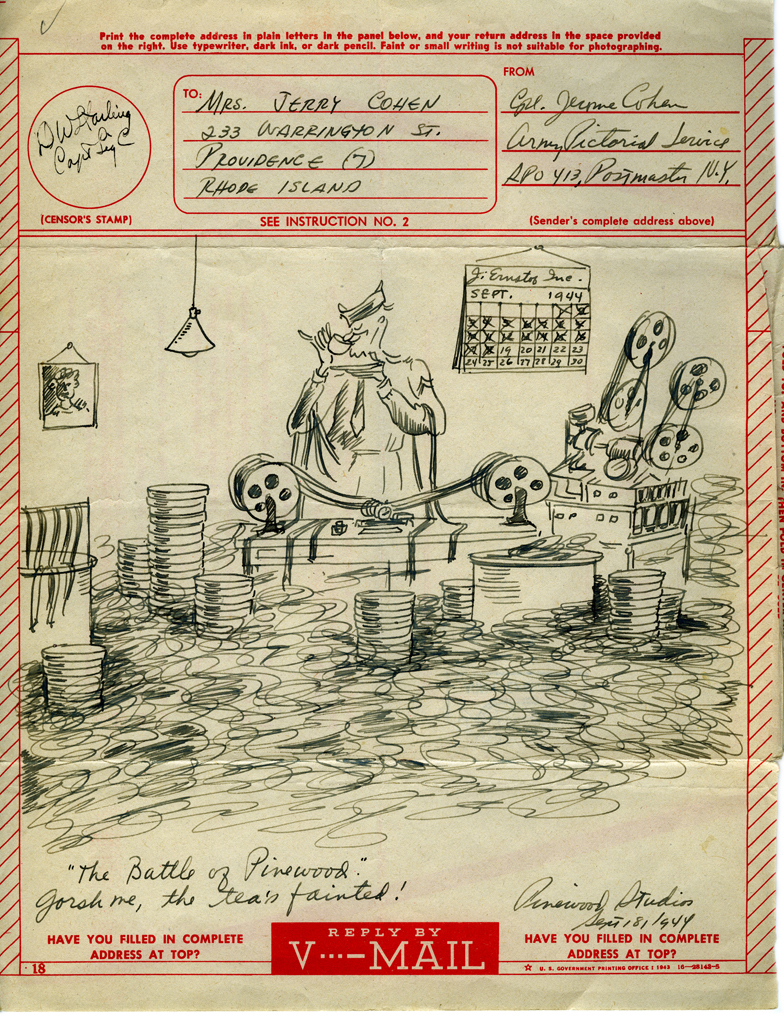 Print the complete address in plain letters in the panel below, and your return address in the space provided
on the right. Use typewriter, dark ink, or dark pencil. Faint or small writing is not suitable for photographing.
FROM
TO:
MRS. JERRY COHEN
233 WARRINGTON ST.
PROVIDENCE (7)
RHODE ISLAND
Cpl. Jerome Cohen
Army Pictorial Service
APO 413, Postmaster N.Y.
Capt Sig C
(CENSOR'S STAMP)
SEE INSTRUCTION NO. 2
(Sender's complete address above)
J. Ernstof Inc.
SEPT. 1944
19 20 21 22 23
24 25 26 27 28 29 30
"The Battle of Pinewood."
Gorsh me, the tea's fainted!
Pinewood Studios
Sept 18, 1944
HAVE YOU FILLED IN COMPLETE
ADDRESS AT TOP?
REPLY BY
V···—MAIL
HAVE YOU FILLED IN COMPLETE
ADDRESS AT TOP?
18
☆ U. S. GOVERNMENT PRINTING OFFICE : 1943 16—28143-5